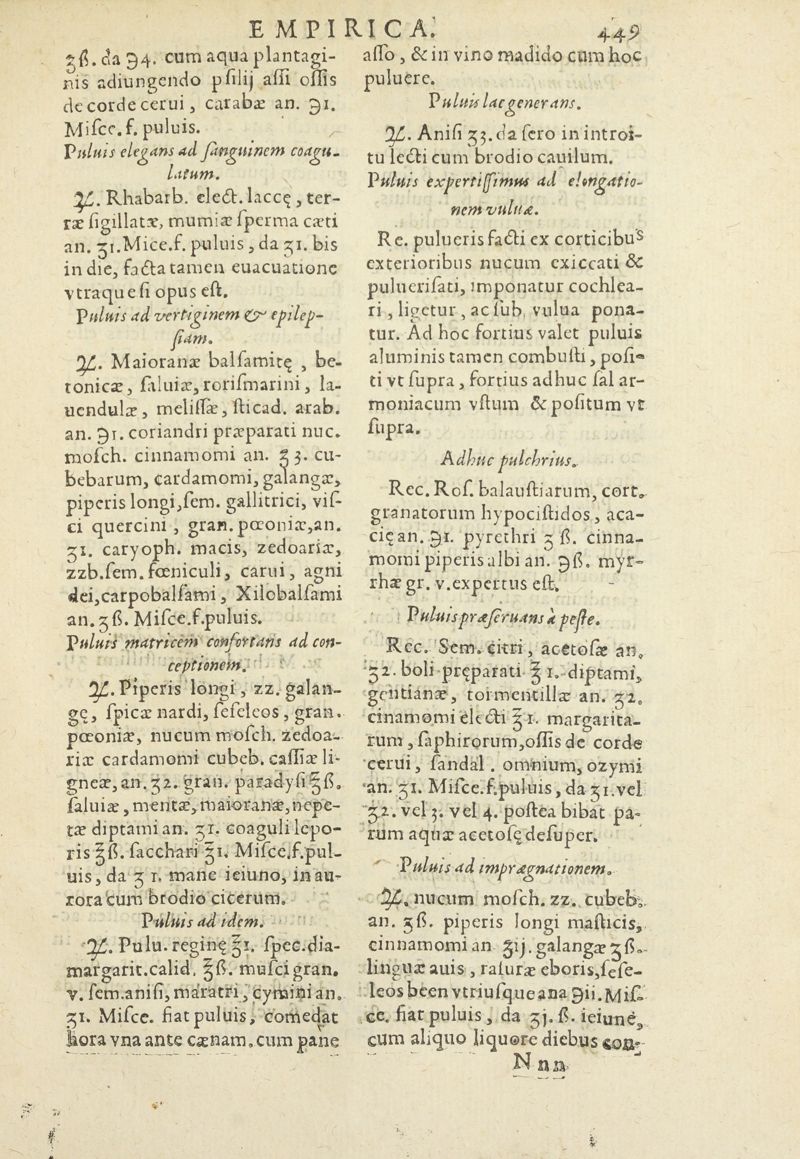 EMPIRICA. 449
ʒß. da ℈4. cum aqua plantagi-
nis adiungendo pſilij aſſi oſſis
de corde cerui, carabæ an. ℈1.
Miſcc. f. puluis.
Puluis elegans ad ſanguinem coagu-
latum.
℞. Rhabarb. elect. laccę, ter-
ræ ſigillatæ, mumiæ ſperma cæti
an. ʒ1. Mice. f. puluis, da ʒ1. bis
in die, facta tamen euacuatione
vtraque ſi opus eſt.
Puluis ad vertiginem & epilep-
ſiam.
℞. Maioranæ balſamitę, be-
tonicæ, ſaluiæ, roriſmarini, la-
uendulæ, meliſſæ, ſticad. arab.
an. ℈1. coriandri præparati nuc.
moſch. cinnamomi an. ʒ3. cu-
bebarum, cardamomi, galangæ,
piperis longi, ſem. gallitrici, viſ-
ci quercini, gran. pœoniæ, an.
ʒ1. caryoph. macis, zedoariæ,
zzb. ſem. fœniculi, carui, agni
dei, carpobalſami, Xilobalſami
an. ʒß. Miſce. f. puluis.
Puluis matricem confortans ad con-
ceptionem.
℞. Piperis longi, zz. galan-
gę, ſpicæ nardi, ſeſeleos, gran.
pœoniæ, nucum moſch. zedoa-
riæ cardamomi cubeb. caſſiæ li-
gneæ, an. ʒ2. gran. paradyſi ℥ß.
ſaluiæ, mentæ, maioranæ, nepe-
tæ diptami an. ʒ1. coaguli lepo-
ris ℥ß. ſacchari ℥1. Miſcc. f. pul-
uis, da ʒ 1. mane ieiuno, in au-
rora cum brodio cicerum.
Puluis ad idem.
℞. Pulu. reginę ℥1. ſpec. dia-
margarit. calid. ℥ß. muſci gran.
v. ſem. aniſi, maratri, cymini an.
ʒ1. Miſce. fiat puluis, comedat
hora vna ante cænam, cum pane
aſſo, & in vino madido cum hoc
puluere.
Puluis lac generans.
℞. Aniſi ʒ3. da ſero in introi-
tu lecti cum brodio cauilum.
Puluis expertiſſimus ad elongatio-
nem vuluæ.
Re. pulueris facti ex corticibus
exterioribus nucum exiccati &
pulueriſati, imponatur cochlea-
ri, ligetur, ac ſub vulua pona-
tur. Ad hoc fortius valet puluis
aluminis tamen combuſti, poſi-
ti vt ſupra, fortius adhuc ſal ar-
moniacum vſtum & poſitum vt
ſupra.
Adhuc pulchrius.
Rec. Roſ. balauſtiarum, cort.
granatorum hypociſtidos, aca-
cię an. ℈1. pyrethri ʒ ß. cinna-
momi piperis albi an. ℈ß. myr-
rhæ gr. v. expertus eſt.
Puluis præſeruans à peſte.
Rec. Sem. citri, acetoſæ an.
ʒ2. boli pręparati ℥ 1. diptami,
gentianæ, tormentillæ an. ʒ2.
cinamomi electi ℥1. margarita-
rum, ſaphirorum, oſſis de corde
cerui, ſandal. omnium, ozymi
an. ʒ1. Miſce. f. puluis, da ʒ1. vel
ʒ2. vel 3. vel 4. poſtea bibat pa-
rum aquæ acetoſę deſuper.
Puluis ad imprægnationem.
℞. nucum moſch. zz. cubeb.
an. ʒß. piperis longi maſticis,
cinnamomi an ʒij. galangæ ʒß.
linguæ auis, raſuræ eboris, ſeſe-
leos been vtriuſque ana ℈ii. Miſ-
ce. fiat puluis, da ʒj. ß. ieiune,
cum aliquo liquore diebus con-
Nnn